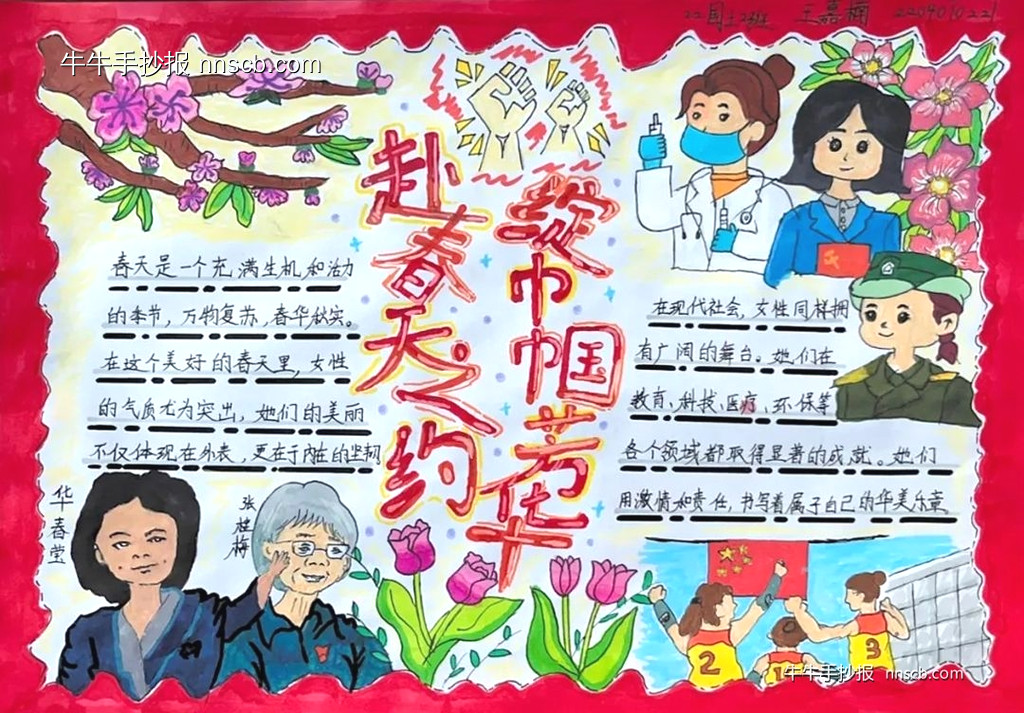 22国土2班 王嘉楠 2204010221
牛牛手抄报 nnscb.com
赴春天之约
绽巾帼芳华
春天是一个充满生机和活力
的季节，万物复苏，春华秋实。
在这个美好的春天里，女性
的气质尤为突出，她们的美丽
不仅体现在外表，更在于内在的坚韧
华春莹
张桂梅
在现代社会，女性同样拥
有广阔的舞台。她们在
教育、科技、医疗、环保等
各个领域都取得显著的成就。她们
用激情和责任，书写着属于自己的华美乐章
2
1
3
牛牛手抄报 nnscb.com